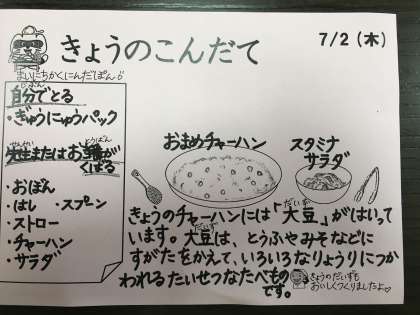 きょうのこんだて
7/2(木)
まいにちかくにんだぽん♪
じぶん
自分でとる
・ぎゅうにゅうパック
せんせい とうばん
先生またはお当番が
くばる
・おぼん
・はし ・スプーン
・ストロー
・チャーハン
・サラダ
おまめチャーハン
スタミナ
サラダ
だいず
きょうのチャーハンには「大豆」がはいって
だいず
います。大豆は、とうふやみそなどに
すがたをかえて、いろいろなりょうりにつか
われるたいせつなたべもの
です。
きょうのだいずも
おいしくつくりましたよ♡